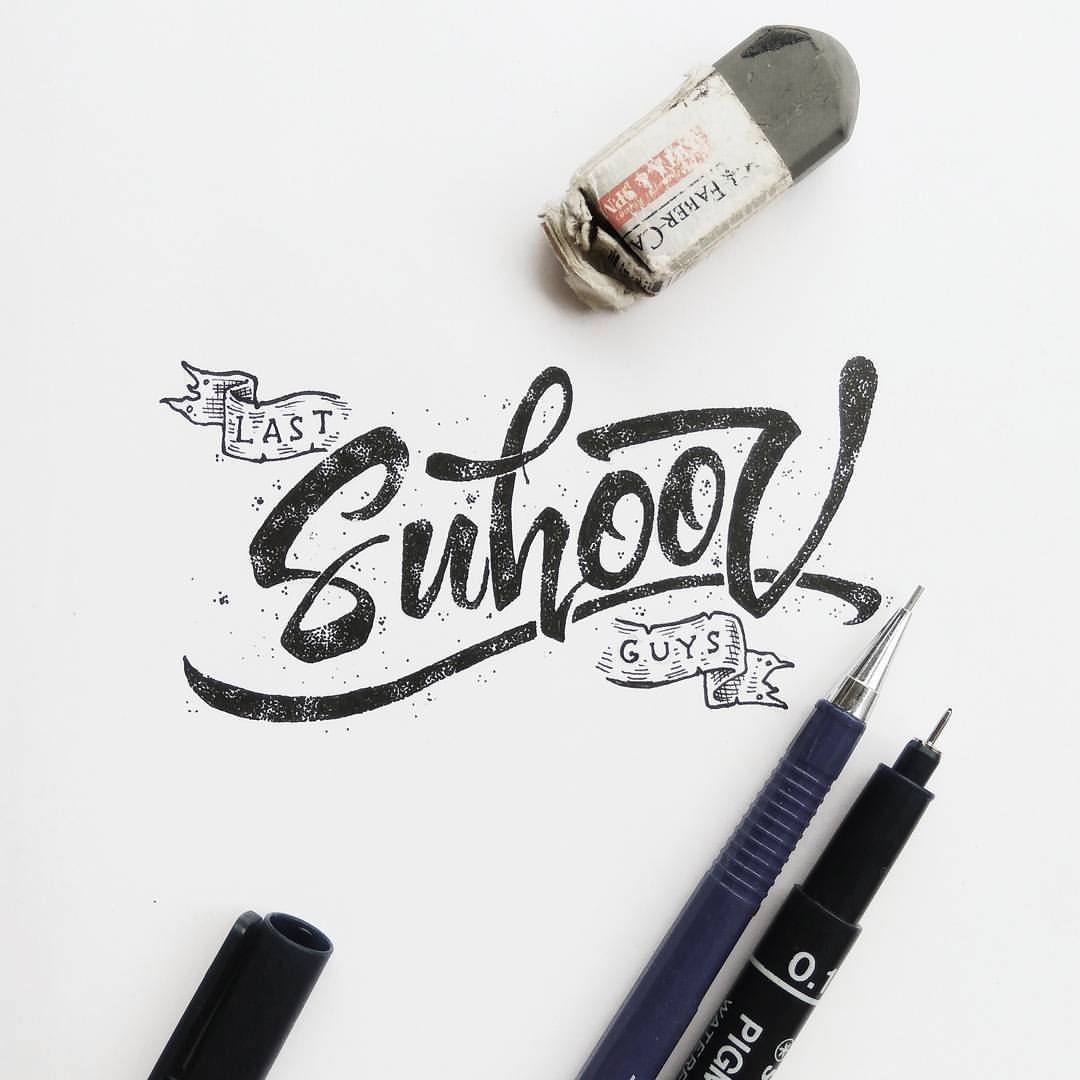 FABER-CA
LAST
Suhoor
GUYS
0.1
PIGM